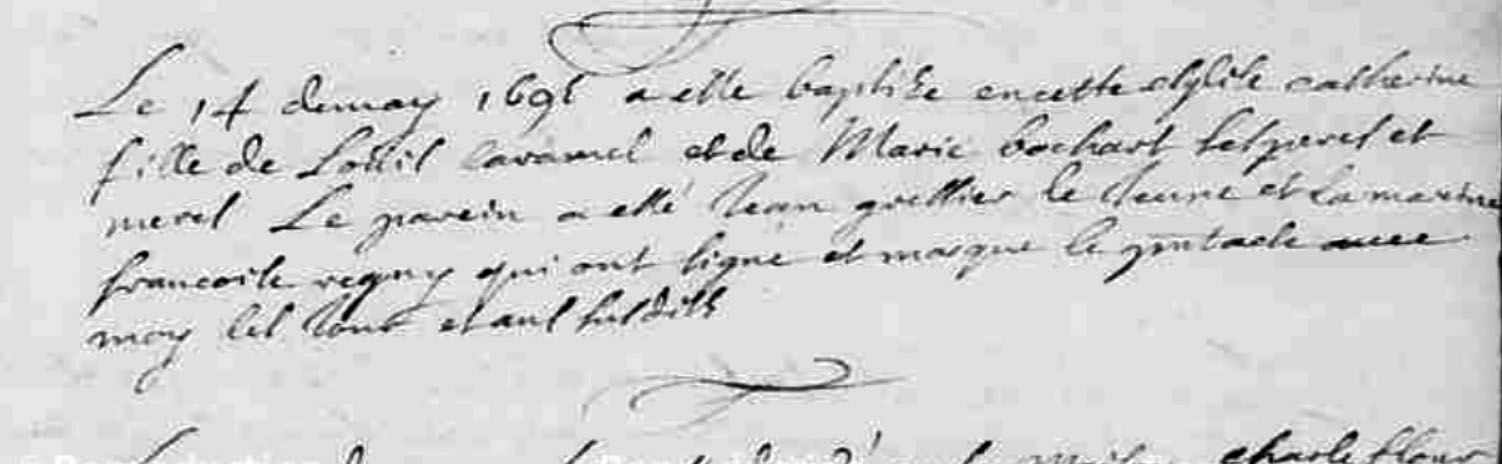 Le 14 de may 169 a esté baptisée en cette esglise catherine
fille de Louis caramel et de Marie bochart ses peres et
meres Le parein a esté Jean grellier le Jeune et La mareine
francoise regny qui ont signe et marque le pnt acte avec
moy les Jour et ans susdits
charle